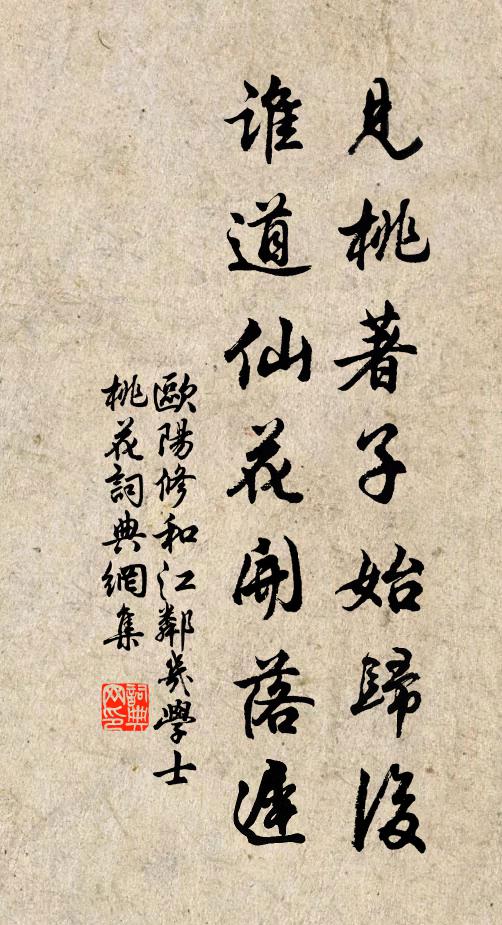 見桃著子始歸後
誰道仙花開落遲
歐陽修和江鄰幾學士
桃花詞典網集
詞典
网印